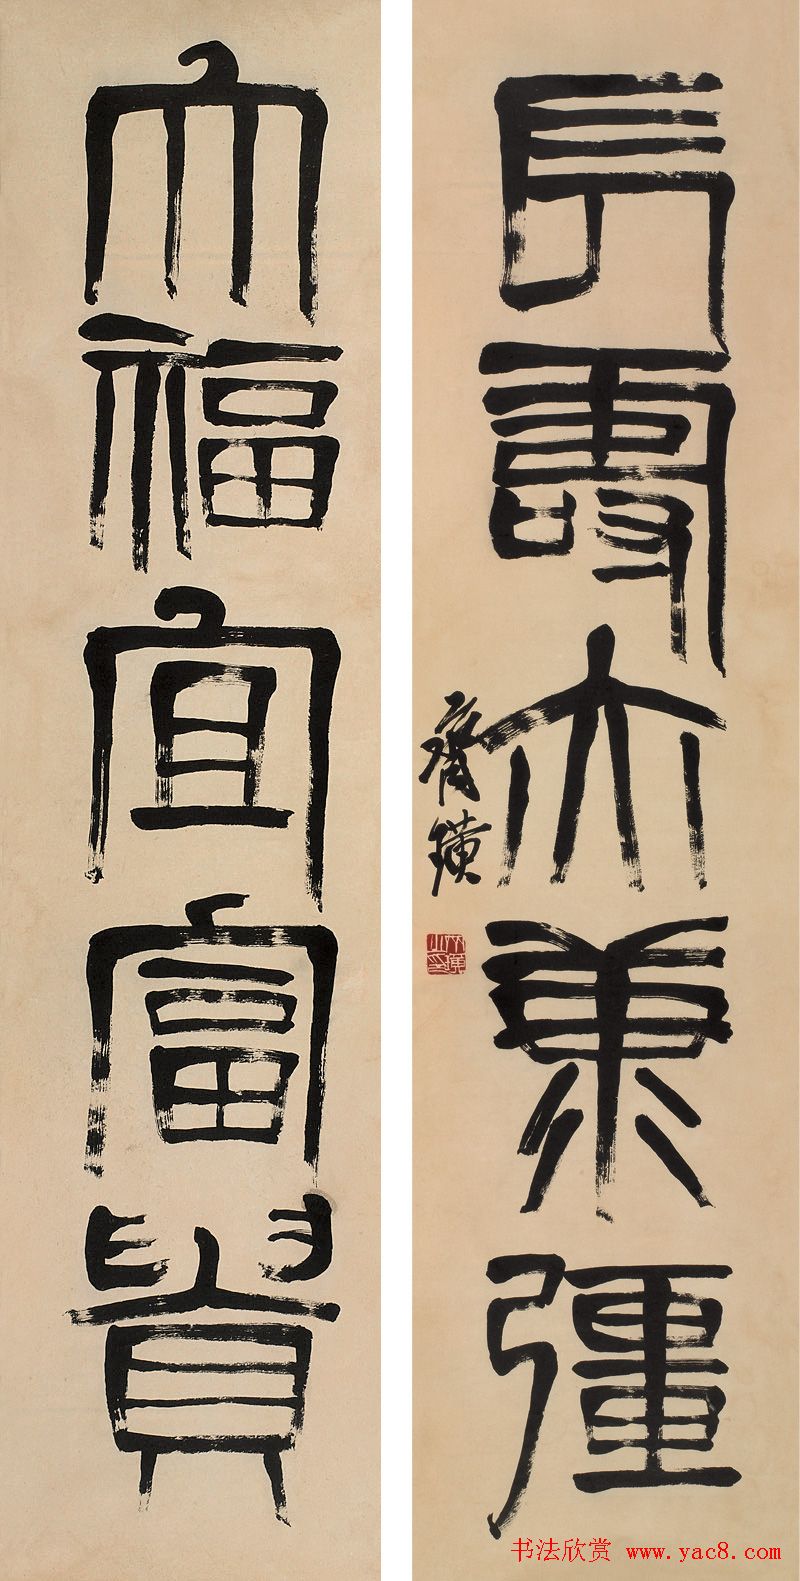 長壽亦康彊
齊璜
大福宜富貴
书法欣赏 www.yac8.com